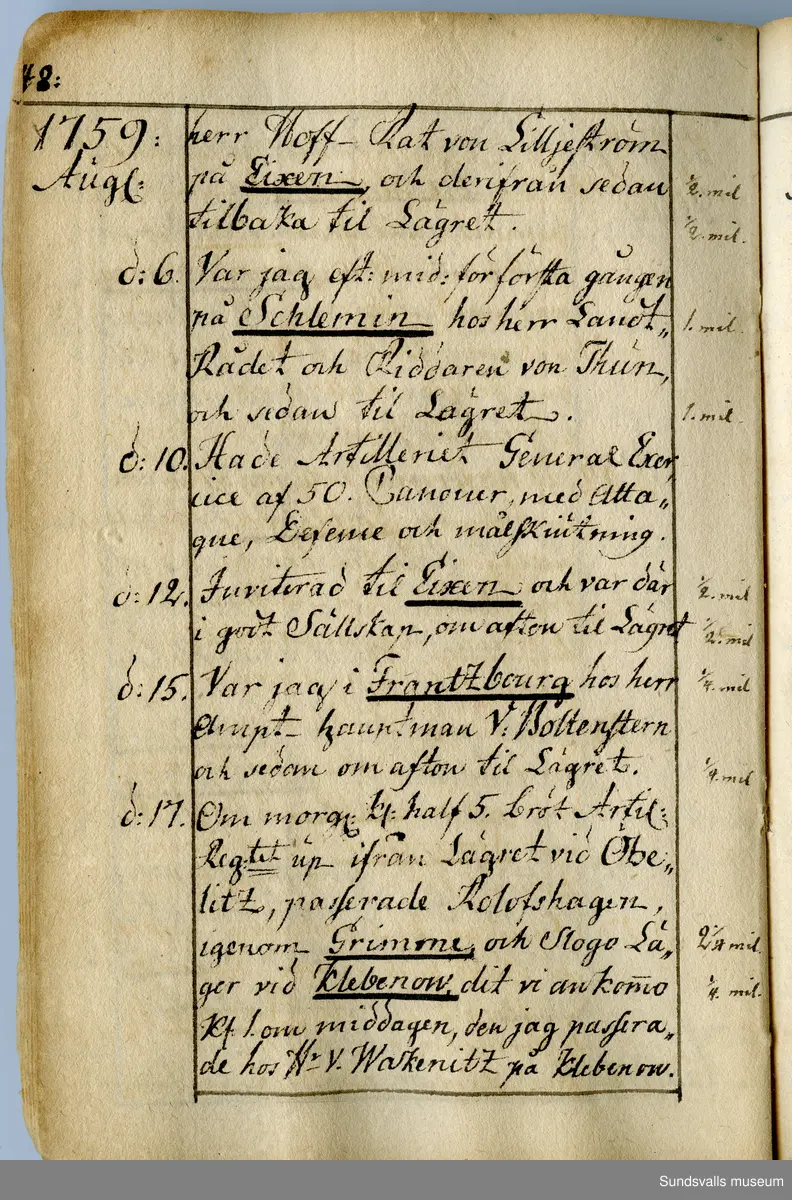 48:
1759: herr Hoff- Rat von Lilljeström
Aug: på Eixen, och derifrån sedan ½. mil
tilbaka til Lägret. ½. mil.
d: 6. Var jag eft: mid: för första gången
på Schlemin hos herr Landt„ 1. mil.
Rådet och Riddaren von Thun,
och sedan til Lägret. 1. mil.
d: 10. Hade Artilleriet General Exer„
cice af 50. Canoner, med Atta„
que, Defence och målskiutning.
d: 12. Inviterad til Eixen och var där ½. mil
i godt Sällskap, om afton til Lägret ½. mil
d: 15. Var jag i Frantzbourg hos herr ¼. mil
Ampt- hauptman V: Boltenstern
och sedan om afton til Lägret. ¼. mil
d: 17. Om morg: kl: half 5. bröt Artil:
Reg:tet up ifrån Lägret vid Öbe„
litz, passerade Rolofshagen,
igenom Grimme, och Slogo Lä„ 2¼ mil.
ger vid Klebenow, dit vi ankom̄o ¼. mil.
kl: 1. om middagen, den jag passera„
de hos Hr V. Wakenitz på Klebenow.
Sundsvalls museum